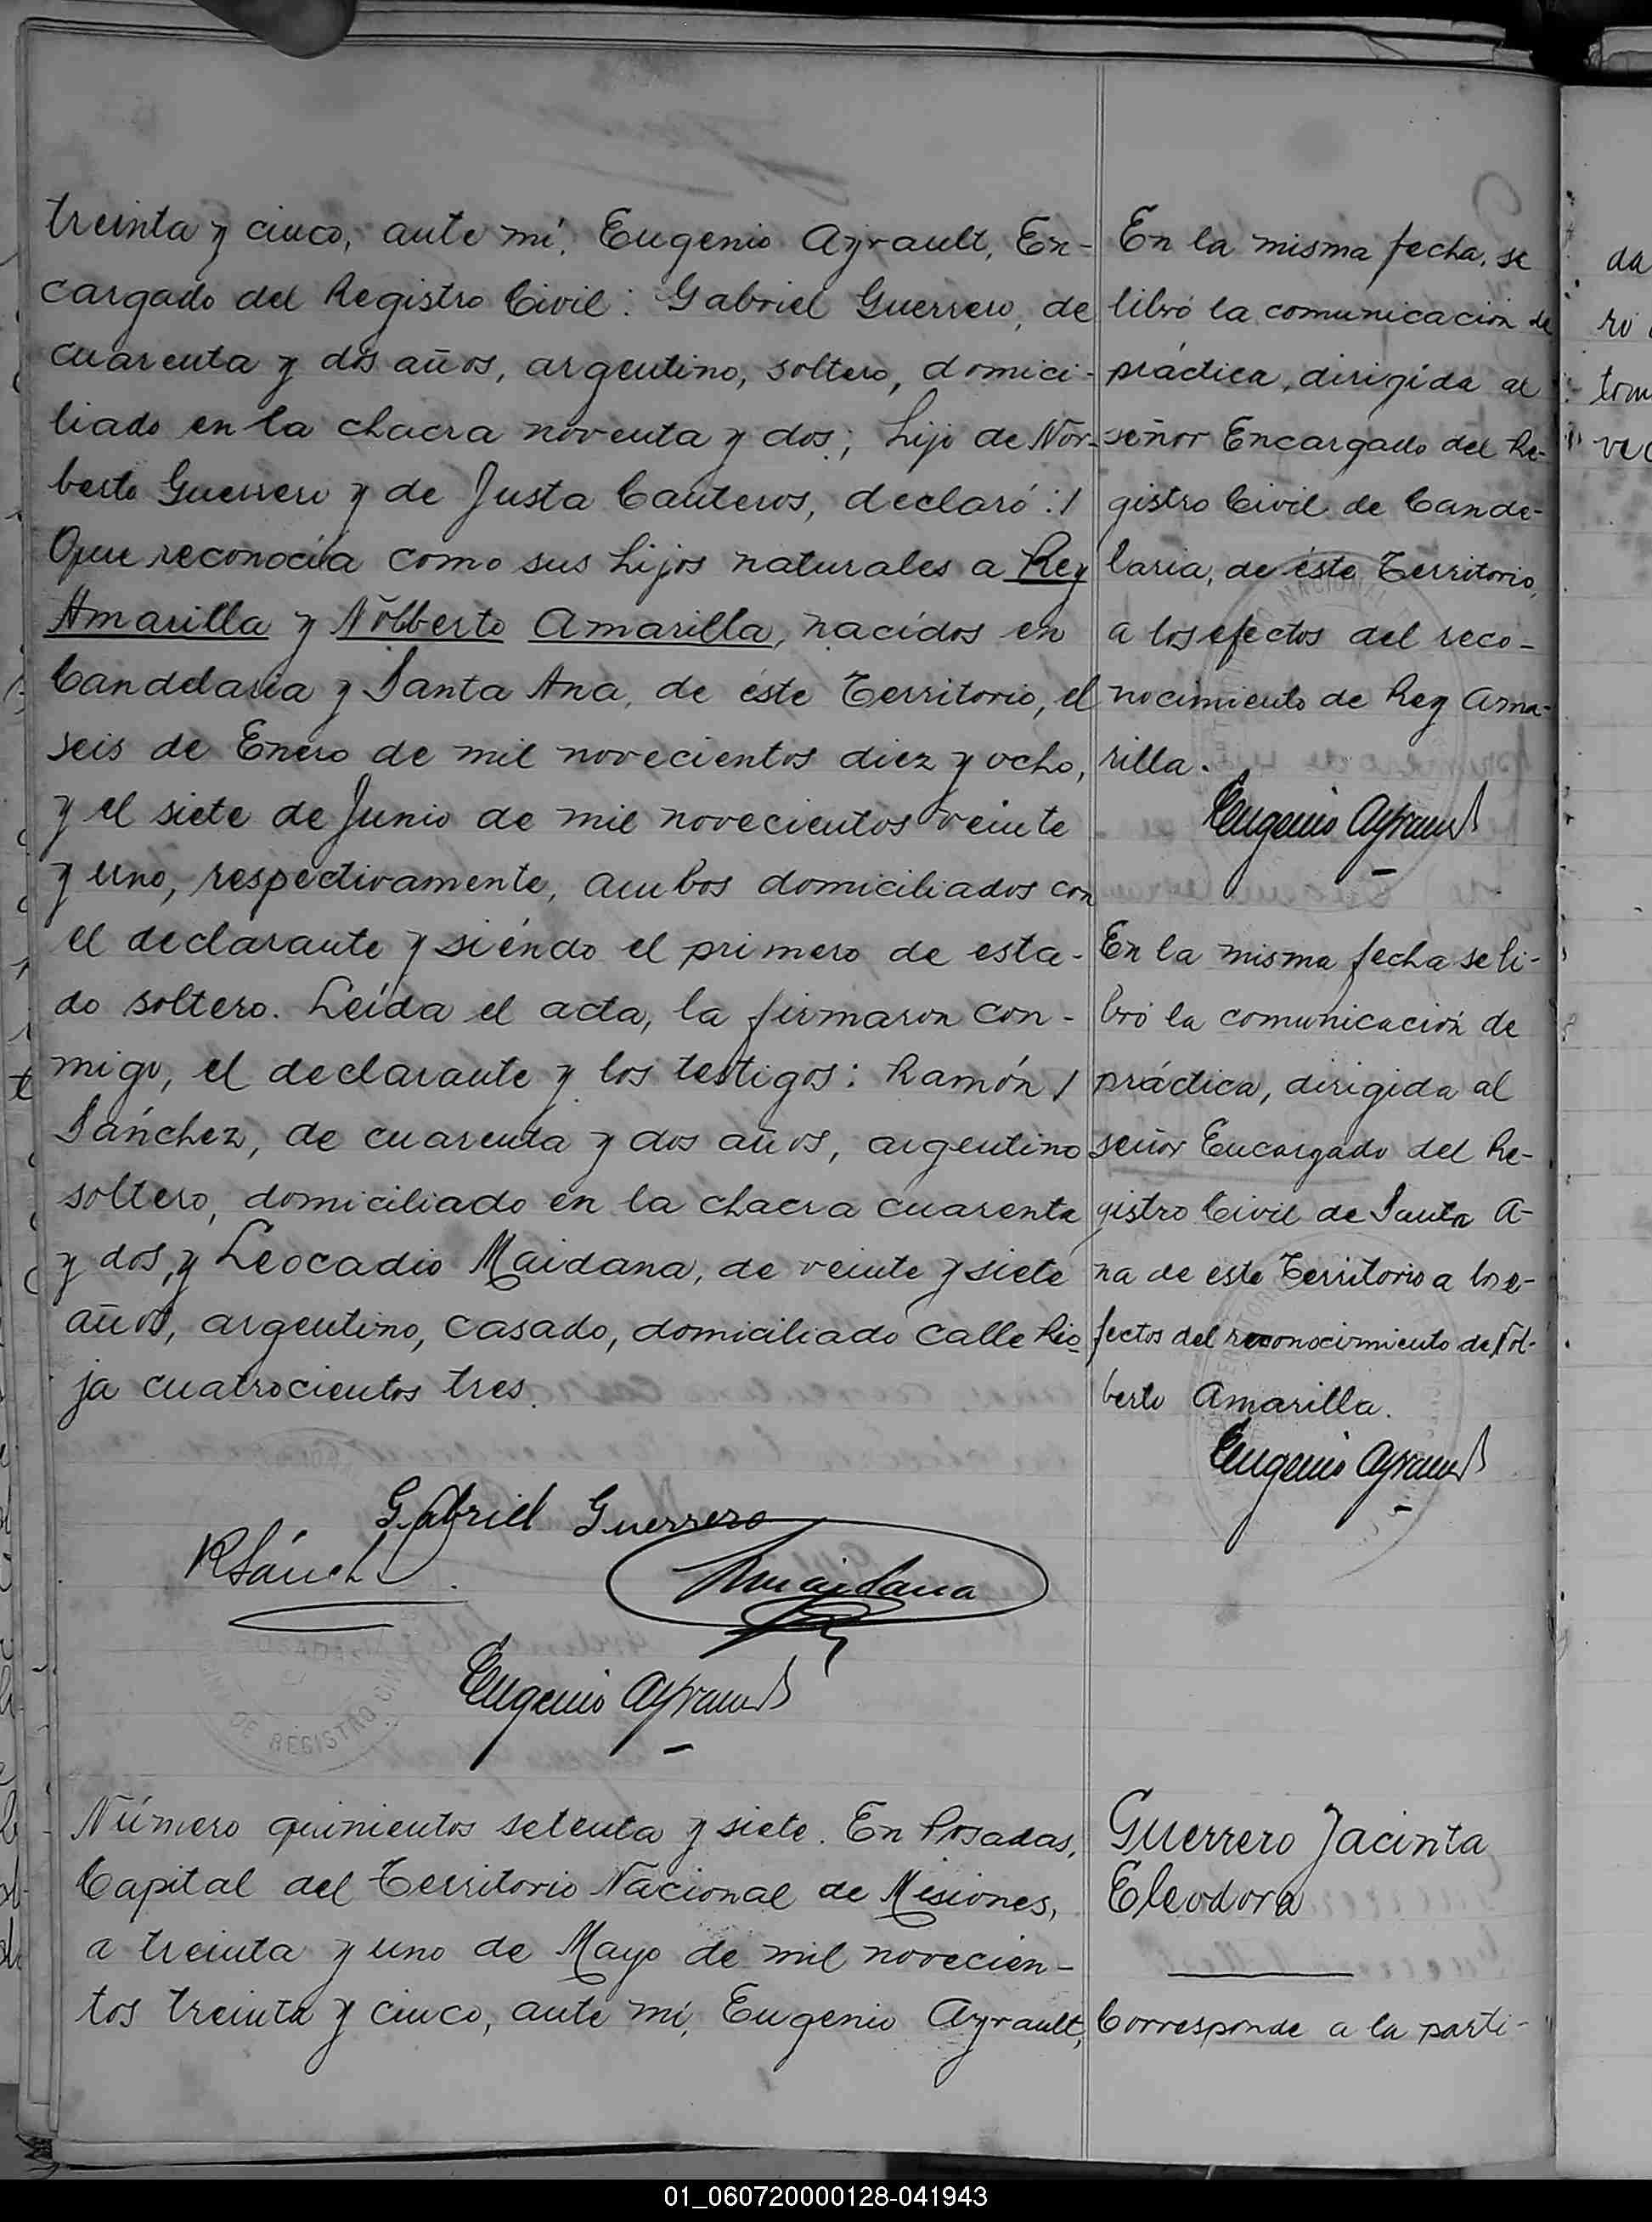 treinta y cinco, ante mí, Eugenio Ayrault, En-
cargado del Registro Civil: Gabriel Guerrero, de
cuarenta y dos años, argentino, soltero, domici-
liado en la chacra noventa y dos; hijo de Nor-
berto Guerrero y de Justa Canteros, declaró:/
Que reconocía como sus hijos naturales a Rey
Amarilla y Nolberto Amarilla, nacidos en
Candelaria y Santa Ana, de éste Territorio, el
seis de Enero de mil novecientos diez y ocho,
y el siete de Junio de mil novecientos veinte
y uno, respectivamente, ambos domiciliados con
el declarante y siéndo el primero de esta-
do soltero. Leída el acta, la firmaron con-
migo, el declarante y los testigos: Ramón /
Sánchez, de cuarenta y dos años, argentino
soltero, domiciliado en la chacra cuarenta
y dos, y Leocadio Maidana, de veinte y siete
años, argentino, casado, domiciliado calle Rio
ja cuatrocientos tres.
Gabriel Guerrero
RSánch
Maidana
Eugenio Ayrault
DE REGISTRO
Número quinientos setenta y siete. En Posadas,
Capital del Territorio Nacional de Misiones,
a treinta y uno de Mayo de mil novecien-
tos treinta y cinco, ante mí, Eugenio Ayrault,
En la misma fecha, se
libró la comunicación de
práctica, dirigida al
señor Encargado del Re-
gistro Civil de Cande-
laria, de éste Territorio,
a los efectos del reco-
nocimiento de Rey Ama-
rilla.
Eugenio Ayrault
En la misma fecha se li-
bró la comunicación de
práctica, dirigida al
señor Encargado del Re-
gistro Civil de Santa A-
na de este Territorio a los e-
fectos del reconocimiento de Nol-
berto Amarilla.
Eugenio Ayrault
Guerrero Jacinta
Eleodora
Corresponde a la parti-
da
ro
tom
01_060720000128-041943